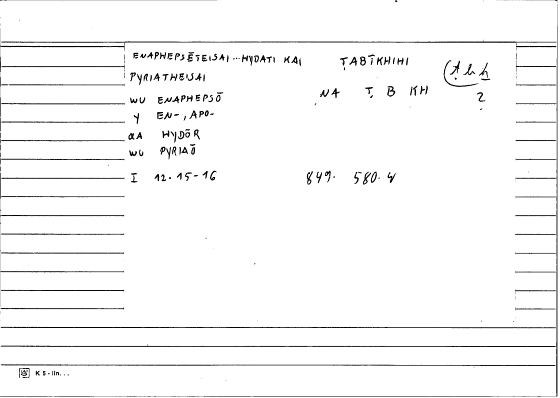 ENAPHEPSĒTEISAI ... HYDATI KAI ṬABĪKHIHI
PYRIATHEISAI
NA Ṭ B KH
2
WU ENAPHEPSŌ
Y EN-, APO-
αA HYDŌR
WU PYRIAŌ
I 12.15-16 849. 580.4
K 5 - IIn...